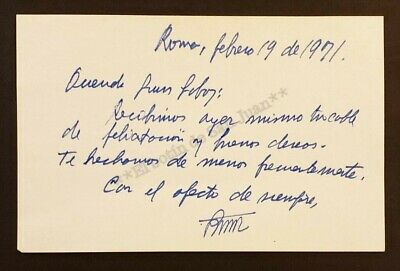 Roma, febrero 19 de 1971.
Querido
Recibimos ayer mismo tu cable
de felicitación y buenos deseos.
Te hechamos de menos frecuentemente.
Con el afecto de siempre,
**El Botín de San Juan**